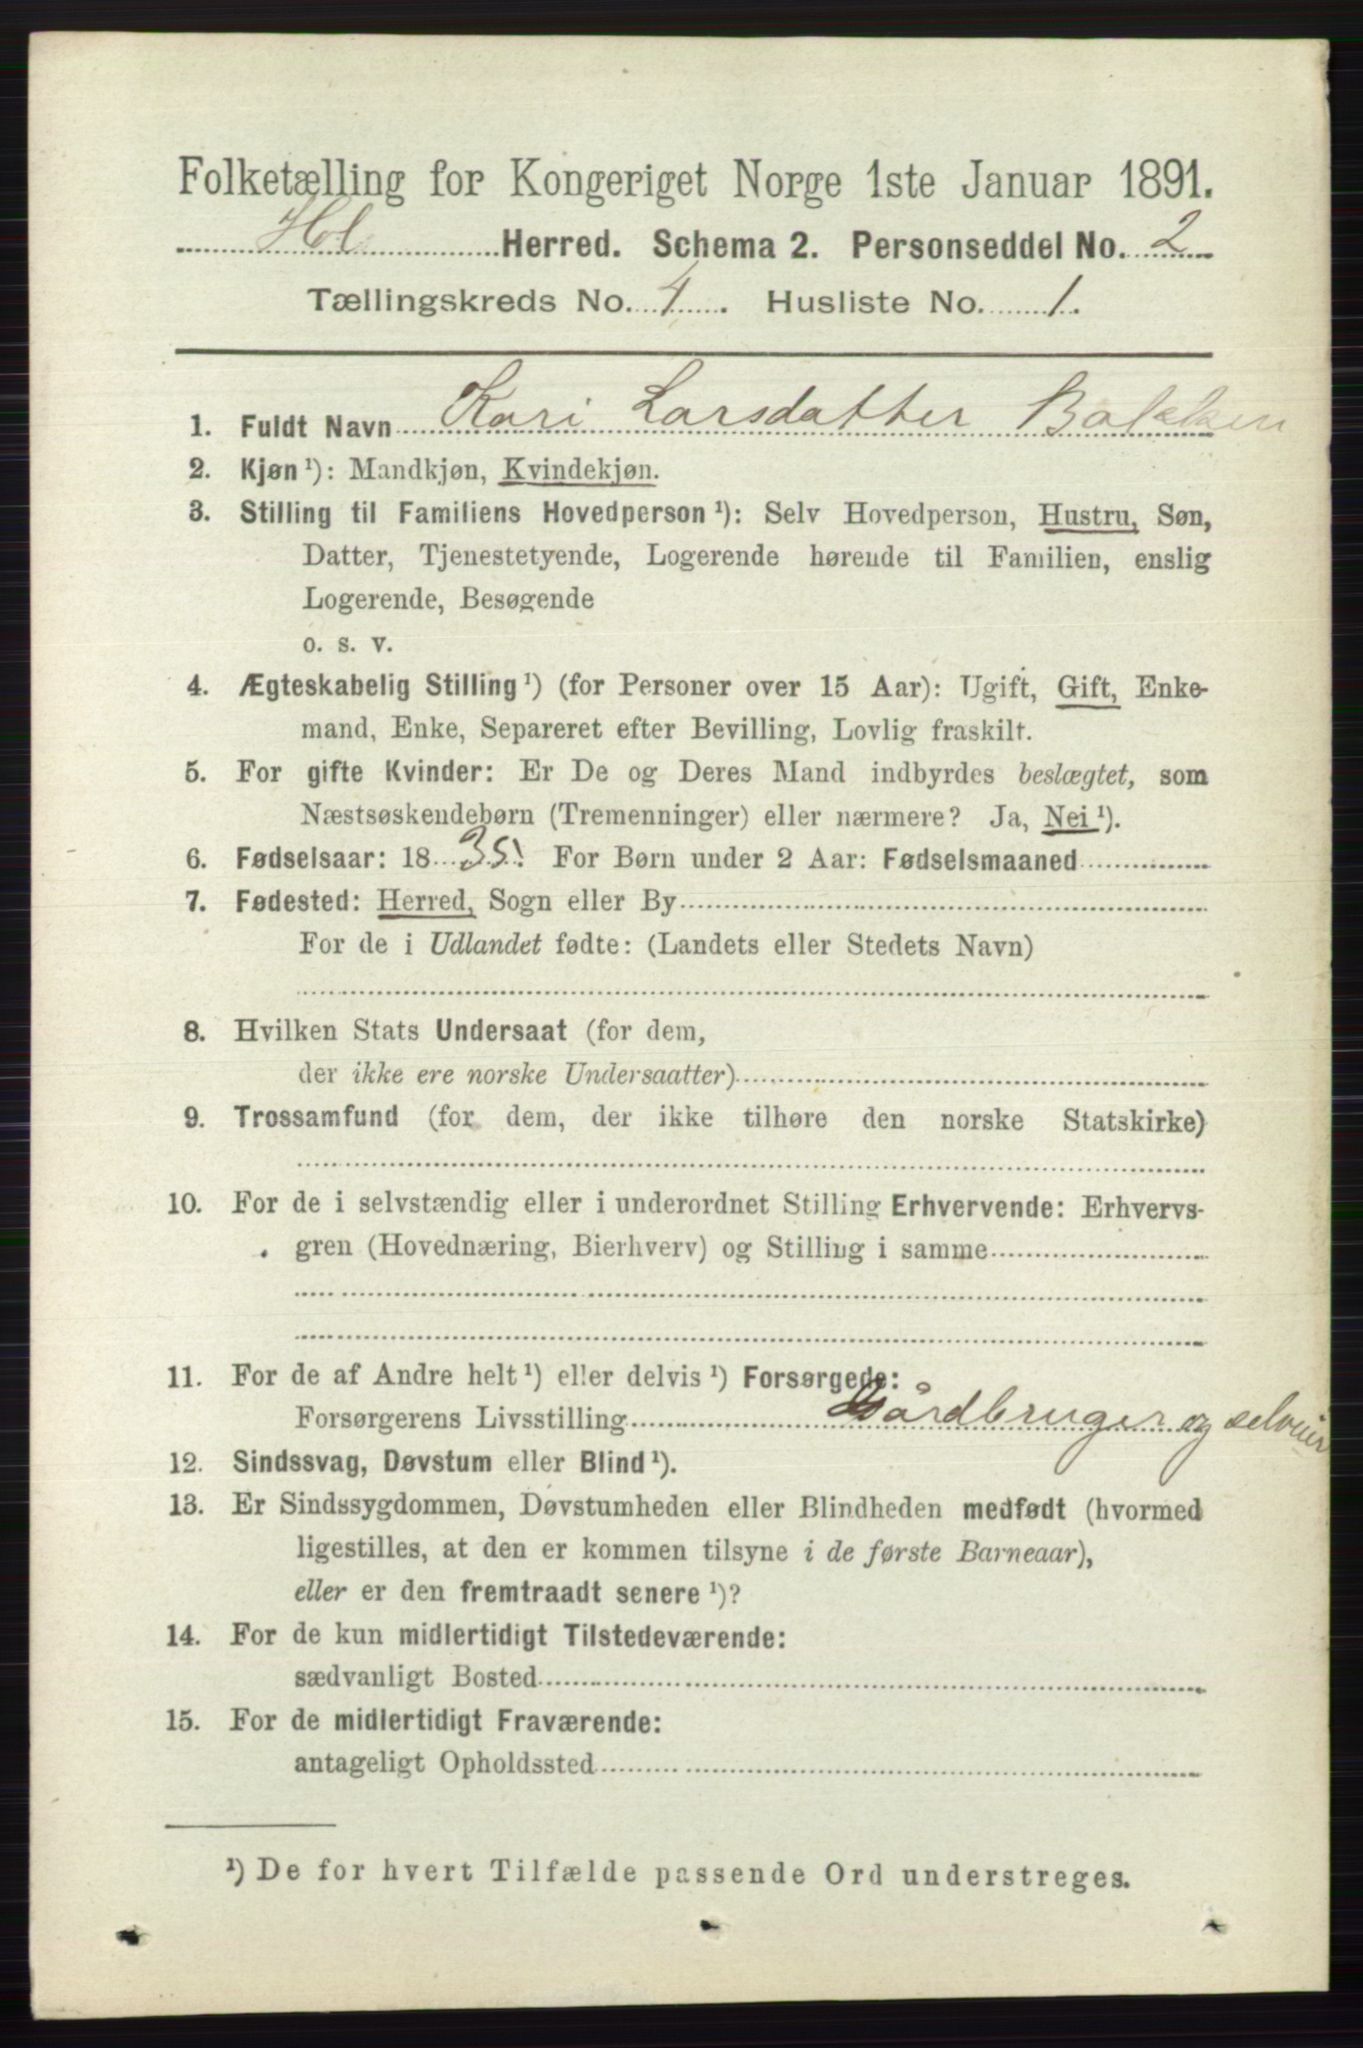 Folketælling for Kongeriget Norge 1ste Januar 1891.
Hol Herred. Schema 2. Personseddel No. 2
Tællingskreds No. 4. Husliste No. 1.
1. Fuldt Navn Kari Larsdatter Bakken
2. Kjøn ¹): Mandkjøn, Kvindekjøn.
3. Stilling til Familiens Hovedperson ¹): Selv Hovedperson, Hustru, Søn,
Datter, Tjenestetyende, Logerende hørende til Familien, enslig
Logerende, Besøgende
o. s. v.
4. Ægteskabelig Stilling ¹) (for Personer over 15 Aar): Ugift, Gift, Enke-
mand, Enke, Separeret efter Bevilling, Lovlig fraskilt.
5. For gifte Kvinder: Er De og Deres Mand indbyrdes beslægtet, som
Næstsøskendebørn (Tremenninger) eller nærmere? Ja, Nei ¹).
6. Fødselsaar: 18 35. For Børn under 2 Aar: Fødselsmaaned
7. Fødested: Herred, Sogn eller By
For de i Udlandet fødte: (Landets eller Stedets Navn)
8. Hvilken Stats Undersaat (for dem,
der ikke ere norske Undersaatter)
9. Trossamfund (for dem, der ikke tilhøre den norske Statskirke)
10. For de i selvstændig eller i underordnet Stilling Erhvervende: Erhvervs-
gren (Hovednæring, Bierhverv) og Stilling i samme
11. For de af Andre helt ¹) eller delvis ¹) Forsørgede:
Forsørgerens Livsstilling Gårdbruger og selveier
12. Sindssvag, Døvstum eller Blind ¹).
13. Er Sindssygdommen, Døvstumheden eller Blindheden medfødt (hvormed
ligestilles, at den er kommen tilsyne i de første Barneaar),
eller er den fremtraadt senere ¹)?
14. For de kun midlertidigt Tilstedeværende:
sædvanligt Bosted
15. For de midlertidigt Fraværende:
antageligt Opholdssted
¹) De for hvert Tilfælde passende Ord understreges.